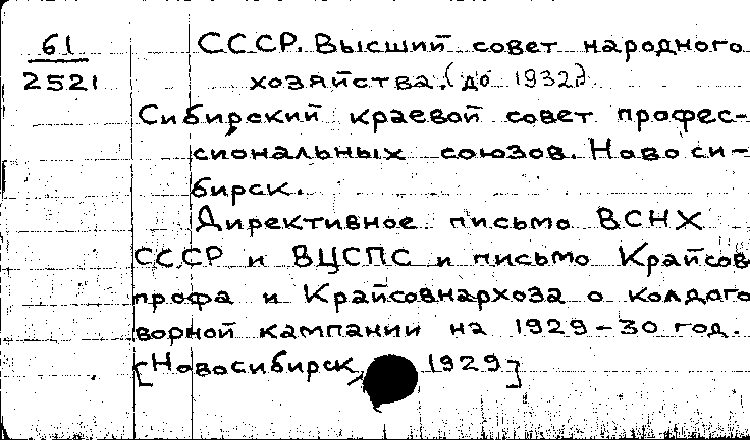 61
2521
СССР. Высший совет народного
хозяйства. (до 1932)
Сибирский краевой совет профес-
сиональных союзов. Новоси-
бирск.
Директивное письмо ВСНХ
СССР и ВЦСПС и письмо Крайсов
профа и Крайсовнархоза о колдого
ворной кампании на 1929-30 год.
[Новосибирск, 1929]